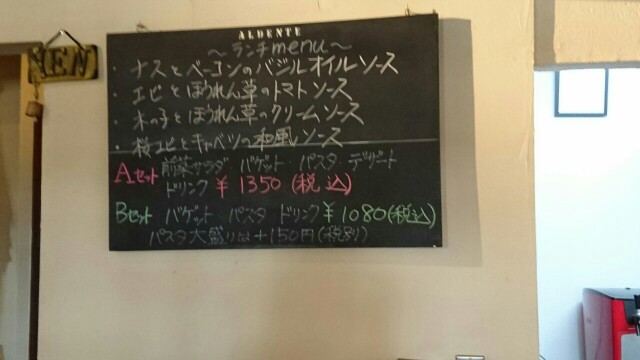 ALDENTE
～ランチmenu～
・ナスとベーコンのバジルオイルソース
・エビとほうれん草のトマトソース
・木の子とほうれん草のクリームソース
・桜エビとキャベツの和風ソース
Aセット 前菜サラダ バゲット パスタ デザート
ドリンク ¥1350(税込)
Bセット バゲット パスタ ドリンク ¥1080(税込)
パスタ大盛りは+150円(税別)
MEN